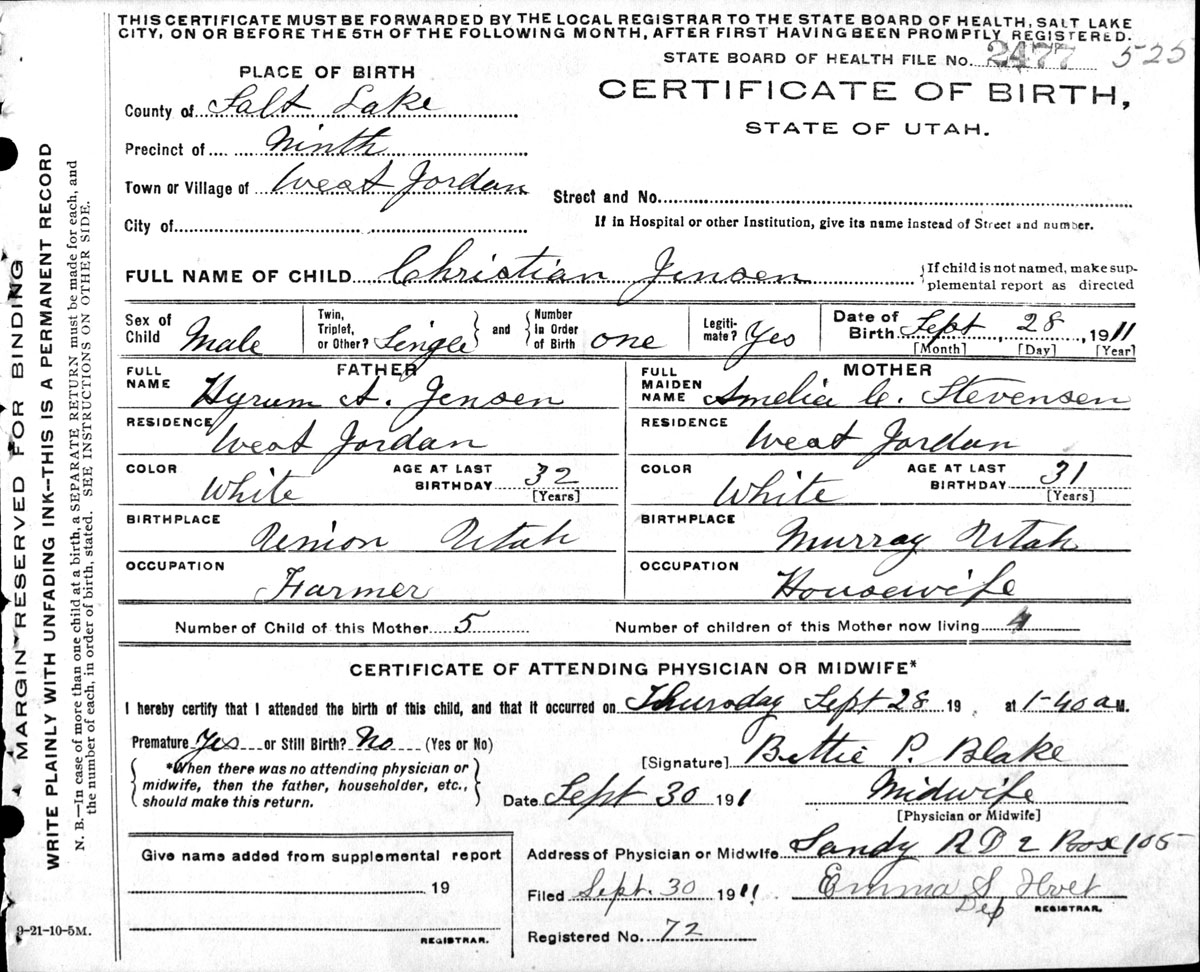 THIS CERTIFICATE MUST BE FORWARDED BY THE LOCAL REGISTRAR TO THE STATE BOARD OF HEALTH, SALT LAKE
CITY, ON OR BEFORE THE 5TH OF THE FOLLOWING MONTH, AFTER FIRST HAVING BEEN PROMPTLY REGISTERED.
STATE BOARD OF HEALTH FILE No. 2477 525
PLACE OF BIRTH
CERTIFICATE OF BIRTH,
STATE OF UTAH.
County of Salt Lake
Precinct of Ninth
Town or Village of West Jordan
Street and No.
City of
If in Hospital or other Institution, give its name instead of Street and number.
FULL NAME OF CHILD Christian Jensen
{If child is not named, make sup-
plemental report as directed
Sex of Child Male
Twin, Triplet, or Other? Single } and { Number In Order of Birth one
Legiti-mate? Yes
Date of Birth Sept, 28, 1911
[Month] [Day] [Year]
FATHER
FULL NAME Hyrum A. Jensen
RESIDENCE West Jordan
COLOR White
AGE AT LAST BIRTHDAY 32
[Years]
BIRTHPLACE Union Utah
OCCUPATION Farmer
MOTHER
FULL MAIDEN NAME Amelia C. Stevensen
RESIDENCE West Jordan
COLOR White
AGE AT LAST BIRTHDAY 31
[Years]
BIRTHPLACE Murray Utah
OCCUPATION Housewife
Number of Child of this Mother 5
Number of children of this Mother now living 4
CERTIFICATE OF ATTENDING PHYSICIAN OR MIDWIFE*
I hereby certify that I attended the birth of this child, and that it occurred on Thursday Sept 28 19 , at 1-40 a M.
Premature Yes or Still Birth? No (Yes or No)
*When there was no attending physician or
midwife, then the father, householder, etc.,
should make this return.
[Signature] Bettie P. Blake
Date Sept 30 191
Midwife
[Physician or Midwife]
Address of Physician or Midwife Sandy RD 2 Box 105
Give name added from supplemental report
19
REGISTRAR.
Filed Sept. 30 1911
Emma S.
Dep REGISTRAR.
Registered No. 72
9-21-10-5M.
MARGIN RESERVED FOR BINDING
WRITE PLAINLY WITH UNFADING INK--THIS IS A PERMANENT RECORD
N. B.—In case of more than one child at a birth, a SEPARATE RETURN must be made for each, and
the number of each, in order of birth, stated. SEE INSTRUCTIONS ON OTHER SIDE.